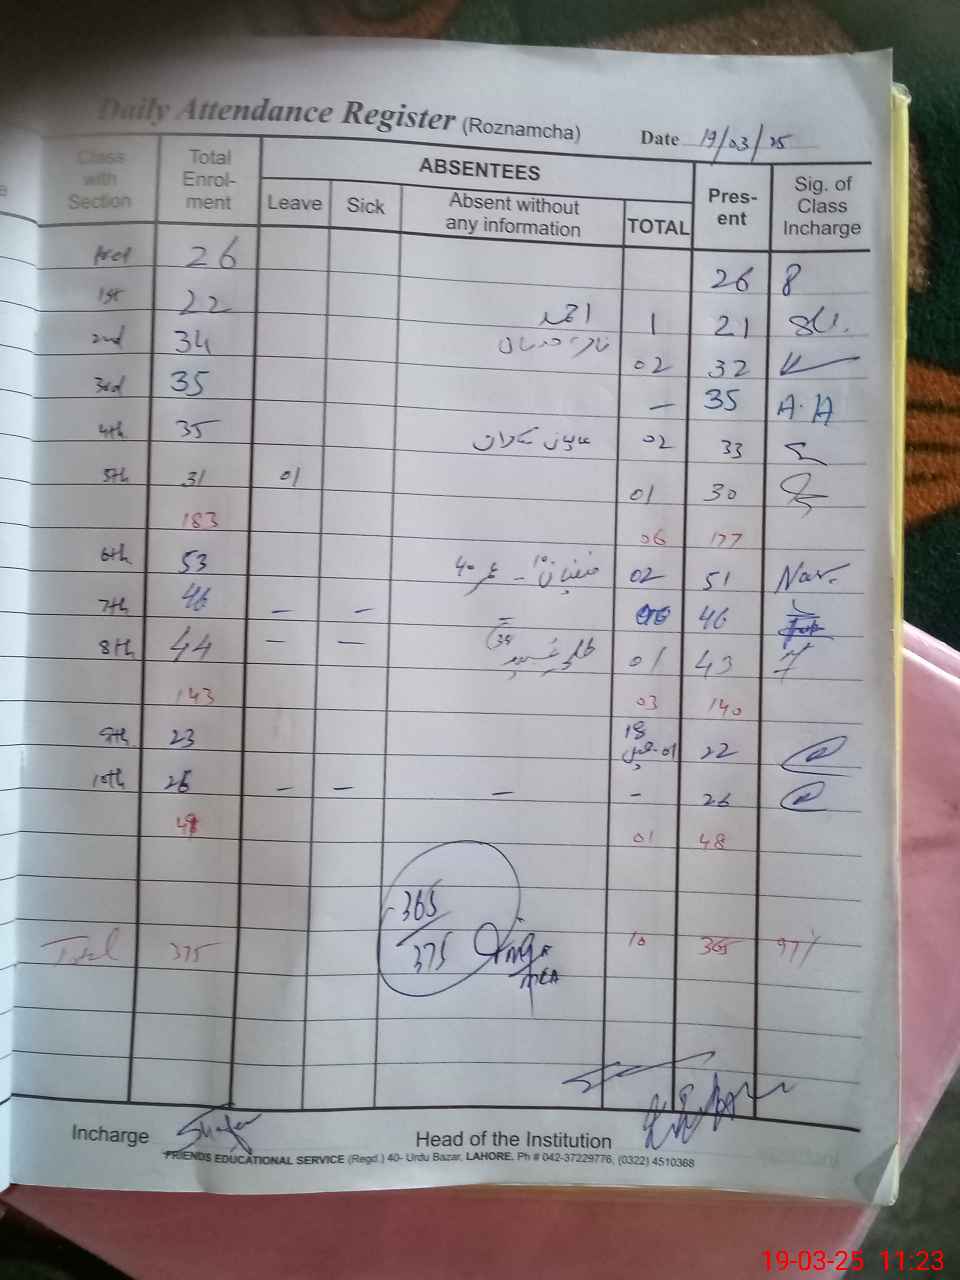 Daily Attendance Register (Roznamcha) Date 19/03/25
Class with Section Total Enrol-ment ABSENTEES Pres-ent Sig. of Class Incharge
Leave Sick Absent without any information TOTAL
26 26 8
1st 22 احمد 1 21
2nd 34 02 32
3rd 35 — 35 A.A
4th 35 02 33
5th 31 01 01 30
183 06 177
6th 53 02 51 Nar.
7th 46 — — 46
8th 44 — — 38 01 43
143 03 140
9th 23 18 01 22
10th 26 — — — - 26
01 48
365
375
Total 375 10 365 97%
Incharge Head of the Institution
FRIENDS EDUCATIONAL SERVICE (Regd.) 40- Urdu Bazar, LAHORE. Ph # 042-37229776, (0322) 4510368
19-03-25 11:23